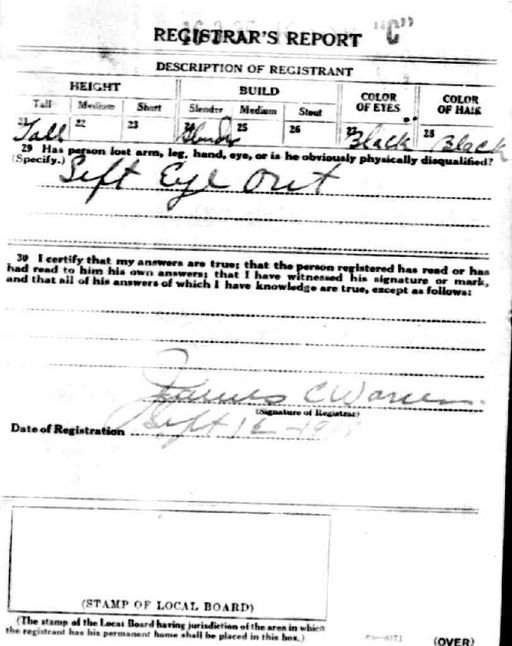 REGISTRAR'S REPORT "C"
DESCRIPTION OF REGISTRANT
HEIGHT BUILD COLOR OF EYES COLOR OF HAIR
Tall Medium Short Slender Medium Stout
21 Tall 22 23 24 Slender 25 26 27 Black 28 Black
29 Has person lost arm, leg, hand, eye, or is he obviously physically disqualified?
(Specify.) Left Eye Out
30 I certify that my answers are true; that the person registered has read or has
had read to him his own answers; that I have witnessed his signature or mark,
and that all of his answers of which I have knowledge are true, except as follows:
James C Warren
(Signature of Registrar)
Date of Registration Sept 12 - 191
(STAMP OF LOCAL BOARD)
(The stamp of the Local Board having jurisdiction of the area in which
the registrant has his permanent home shall be placed in this box.)
(OVER)